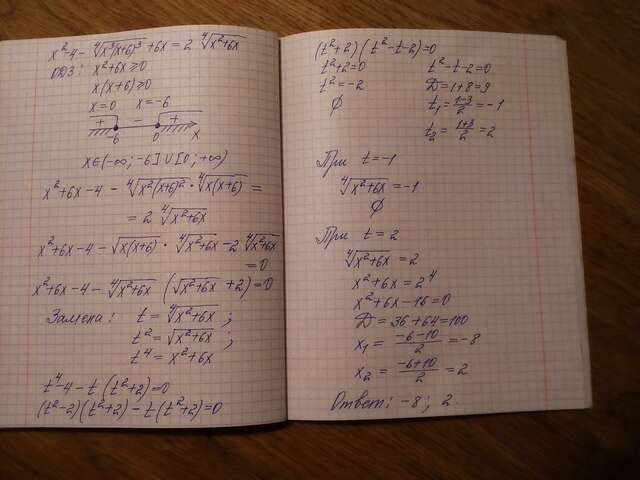 x²-4-⁴√(x³(x+6)³)+6x=2 ⁴√(x²+6x)
ОДЗ: x²+6x≥0
x(x+6)≥0
x=0 x=-6
+ - +
-6 0 x
x∈(-∞;-6]∪[0;+∞)
x²+6x-4-⁴√(x²(x+6)²)·⁴√(x(x+6))=
=2 ⁴√(x²+6x)
x²+6x-4-√(x(x+6))·⁴√(x²+6x)-2 ⁴√(x²+6x)
=0
x²+6x-4-⁴√(x²+6x)(√(x²+6x)+2)=0
Замена: t=⁴√(x²+6x);
t²=√(x²+6x);
t⁴=x²+6x
t⁴-4-t(t²+2)=0
(t²-2)(t²+2)-t(t²+2)=0
(t²+2)(t²-t-2)=0
t²+2=0 t²-t-2=0
t²=-2 D=1+8=9
∅ t₁=(1-3)/2=-1
t₂=(1+3)/2=2
При t=-1
⁴√(x²+6x)=-1
∅
При t=2
⁴√(x²+6x)=2
x²+6x=2⁴
x²+6x-16=0
D=36+64=100
x₁=(-6-10)/2=-8
x₂=(-6+10)/2=2
Ответ: -8; 2.